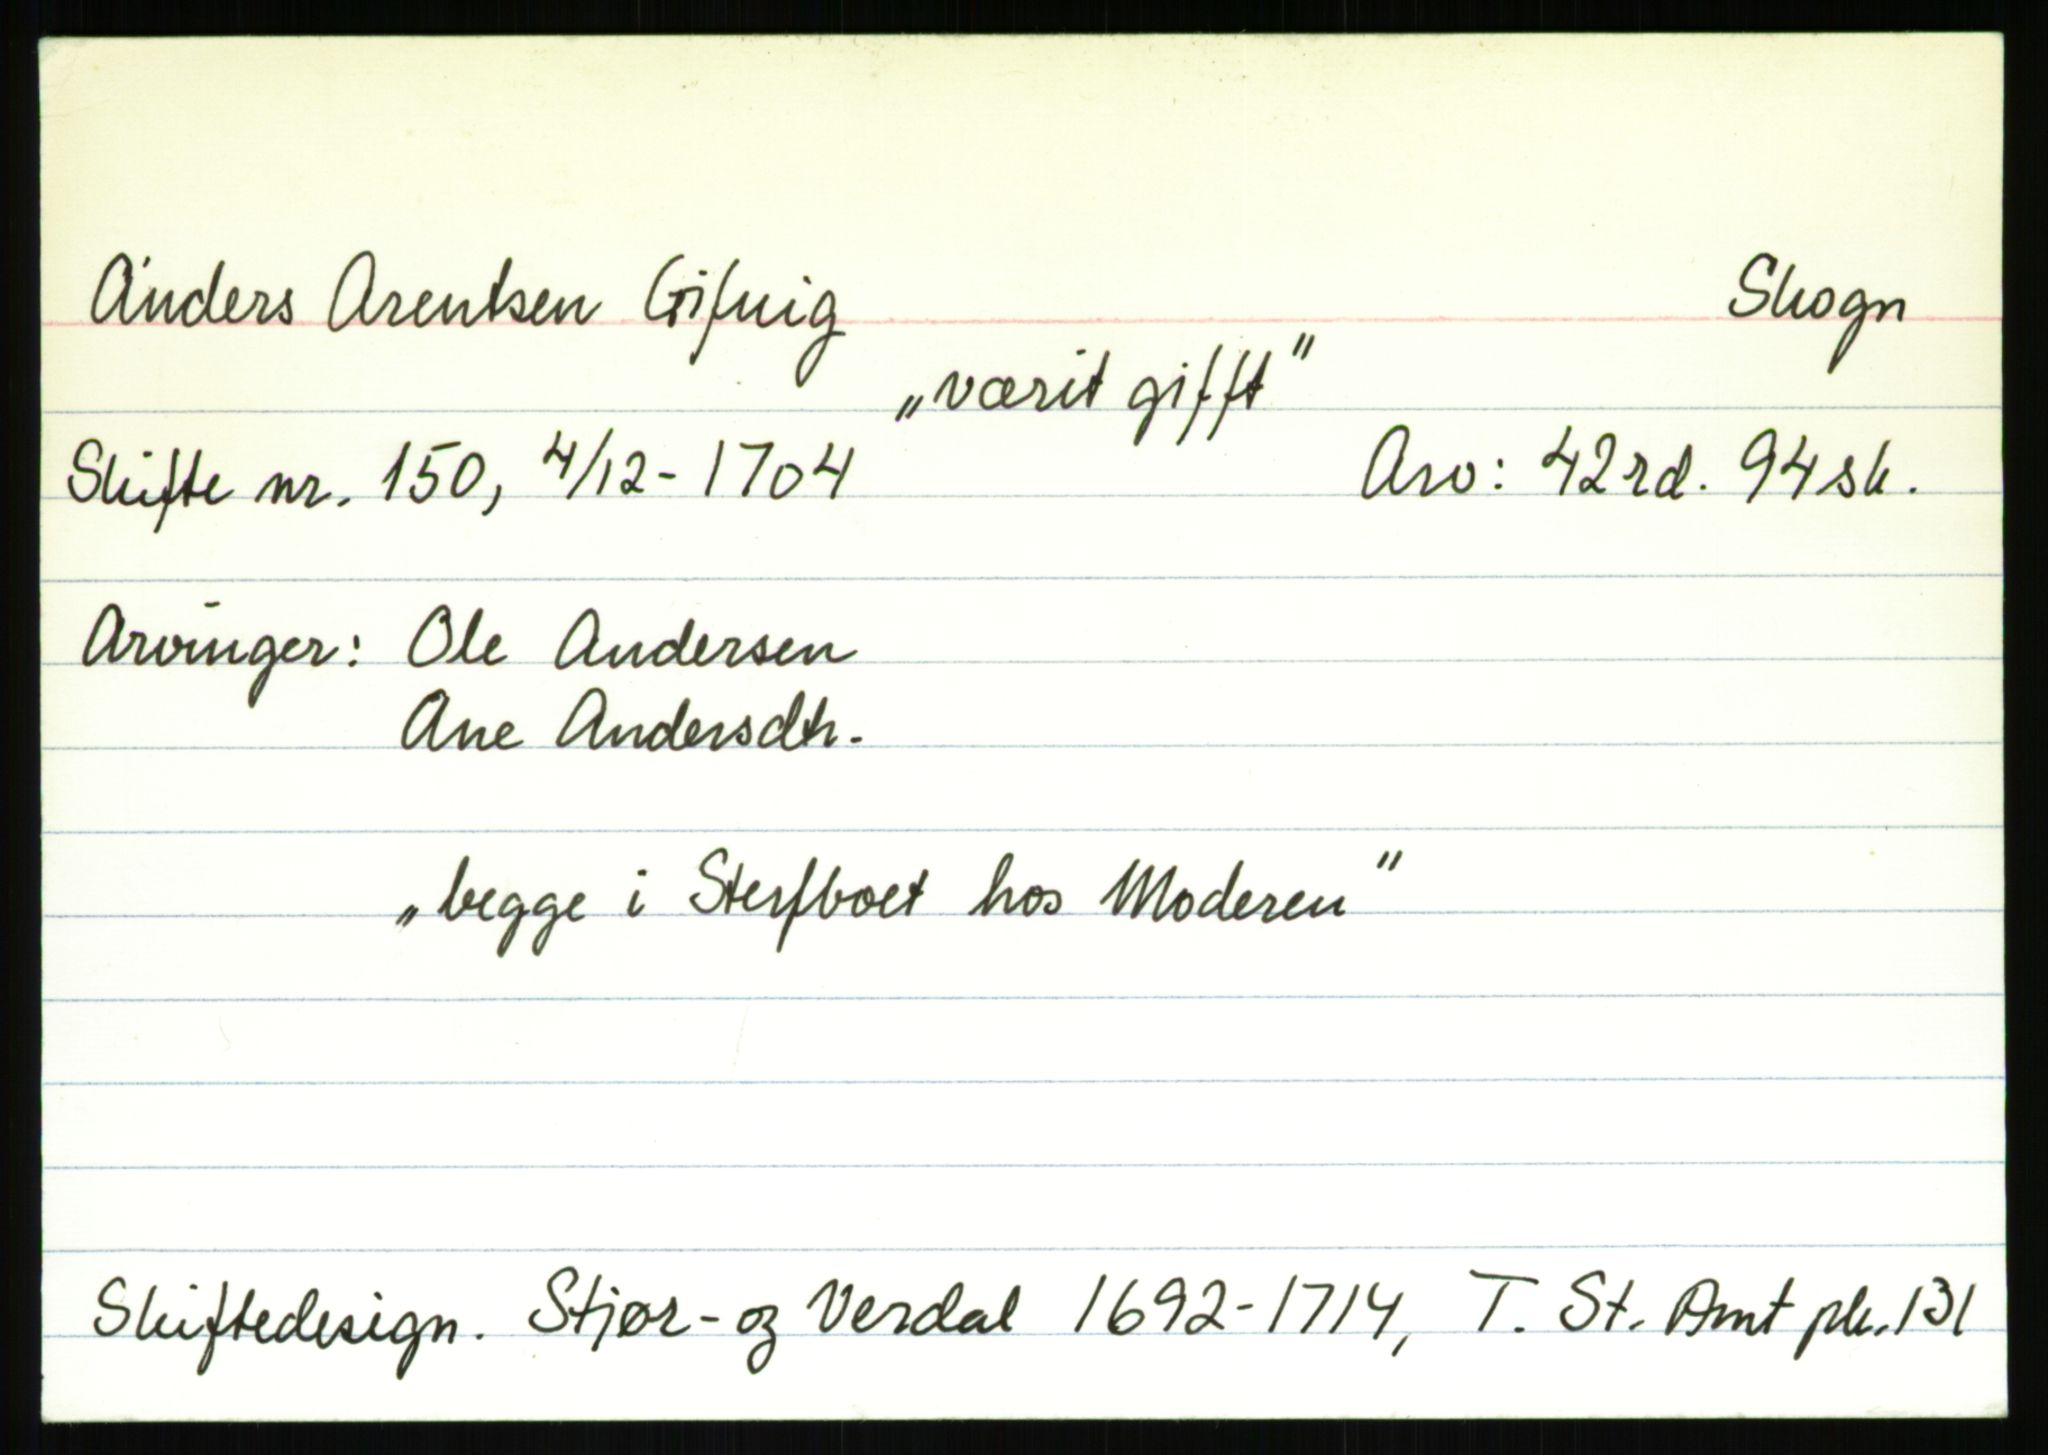 Anders Arentsen Gifnig Skogn
„værit gifft”
Skifte nr. 150, 4/12-1704 Arv: 42rd. 94sk.
Arvinger: Ole Andersen
Ane Andersdtr.
„begge i Sterfboet hos Moderen”
Skiftedesign. Stjør- og Verdal 1692-1714, T. St. Amt pk. 131